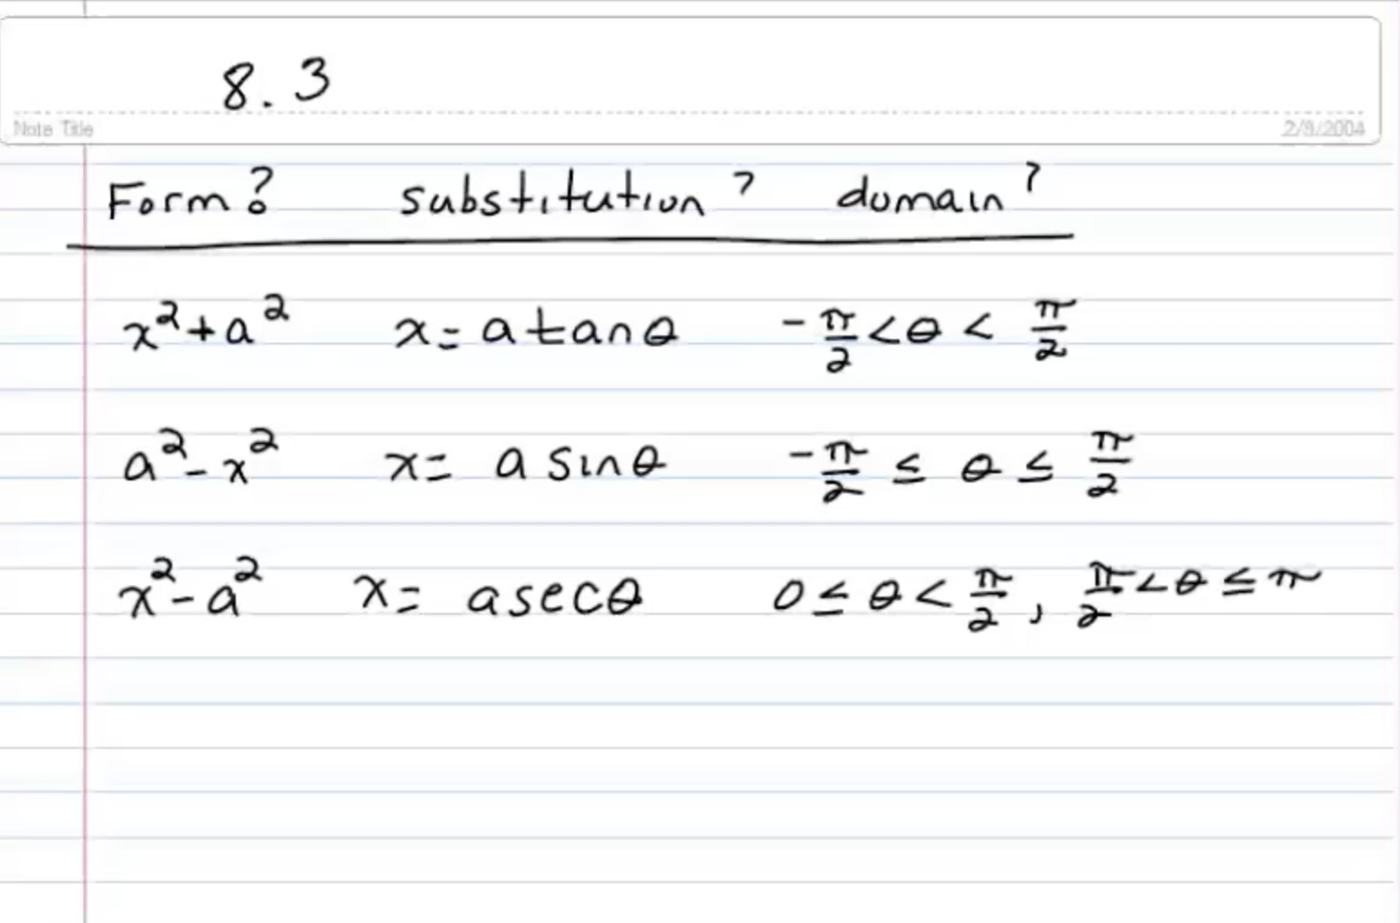 8.3
Note Title 2/9/2004
Form? substitution? domain?
x²+a² x= a tanθ -π/2 <θ < π/2
a²-x² x= a sinθ -π/2 ≤ θ ≤ π/2
x²-a² x= a secθ 0 ≤ θ < π/2, π/2 <θ ≤ π